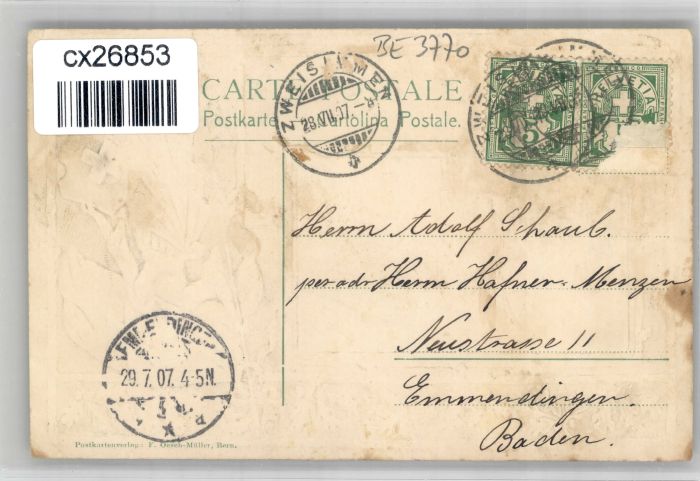 cx26853
BE 3770
CARTE POSTALE
Postkarte. Cartolina Postale.
ZWEISIMMEN
28.VII.07.-8
HELVETIA
Herrn Adolf Schaub.
per adr Herrn Hafner-Menzer
Neustrasse 11
Emmendingen.
Baden.
EMMENDINGEN
29.7.07. 4-5N.
Postkartenverlag: F. Oesch-Müller, Bern.